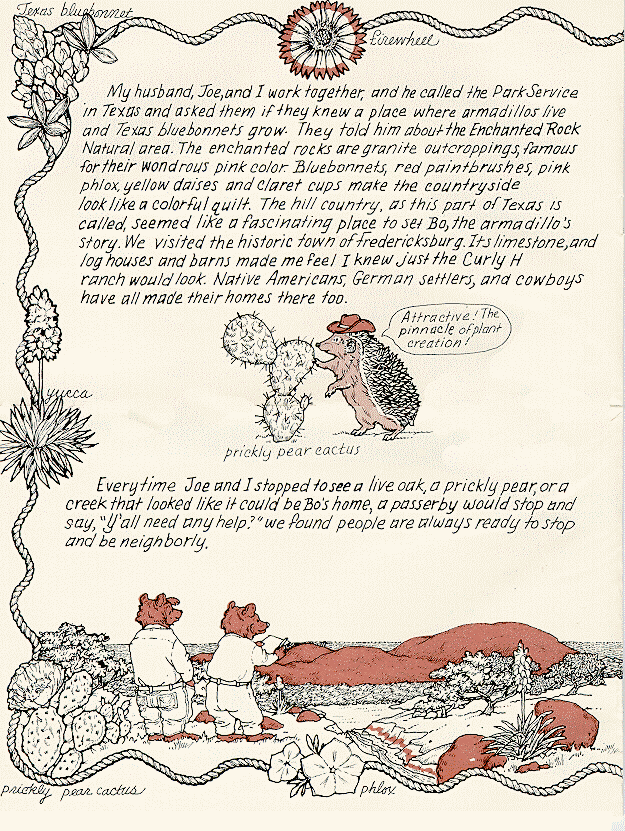 Texas bluebonnet
firewheel
My husband, Joe, and I work together, and he called the Park Service
in Texas and asked them if they knew a place where armadillos live
and Texas bluebonnets grow. They told him about the Enchanted Rock
Natural area. The enchanted rocks are granite outcroppings, famous
for their wondrous pink color. Bluebonnets, red paintbrushes, pink
phlox, yellow daises and claret cups make the countryside
look like a colorful quilt. The hill country, as this part of Texas is
called, seemed like a fascinating place to set Bo, the armadillo's
story. We visited the historic town of Fredericksburg. Its limestone, and
log houses and barns made me feel I knew just the Curly H
ranch would look. Native Americans, German settlers, and cowboys
have all made their homes there too.
Attractive! The
pinnacle of plant
creation!
yucca
prickly pear cactus
Everytime Joe and I stopped to see a live oak, a prickly pear, or a
creek that looked like it could be Bo's home, a passerby would stop and
say, "Y'all need any help?" we found people are always ready to stop
and be neighborly.
prickly pear cactus
phlox